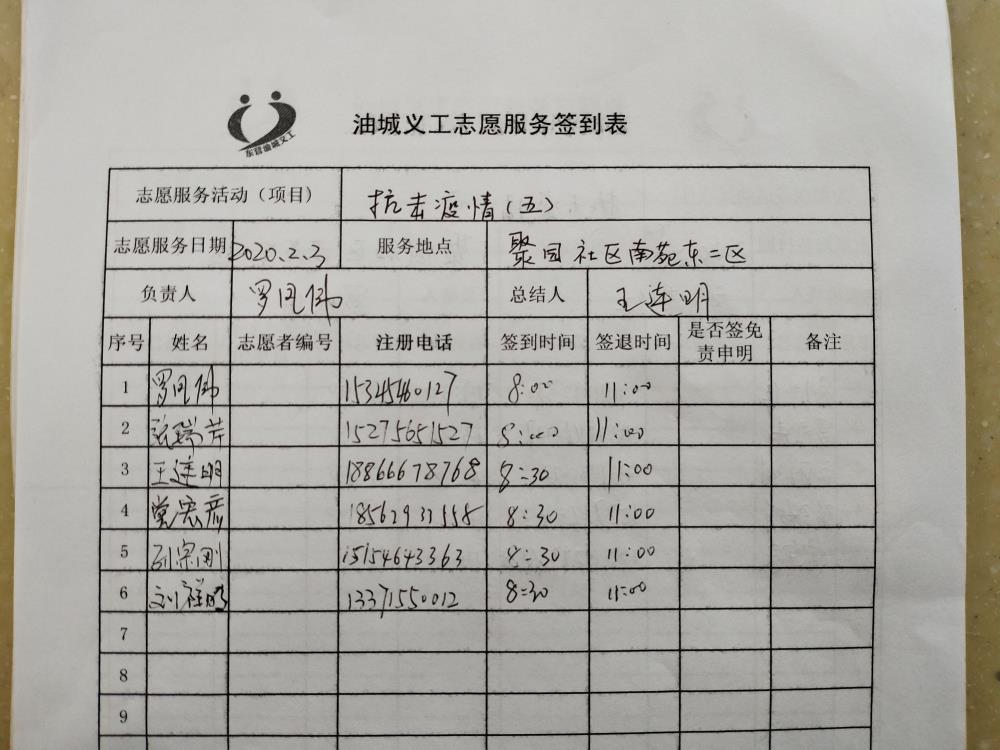 东营油城义工
油城义工志愿服务签到表
志愿服务活动（项目） 抗击疫情（五）
志愿服务日期 2020.2.3 服务地点 聚园社区南苑东二区
负责人 罗同伟 总结人 王连明
序号 姓名 志愿者编号 注册电话 签到时间 签退时间 是否签免责申明 备注
1 罗同伟 15345460127 8:00 11:00
2 张瑞芹 15275651527 8:00 11:00
3 王连明 18866678768 8:30 11:00
4 8:30 11:00
5 孙宗刚 15154643363 8:30 11:00
6 刘祥明 13371550012 8:30 11:00
7
8
9